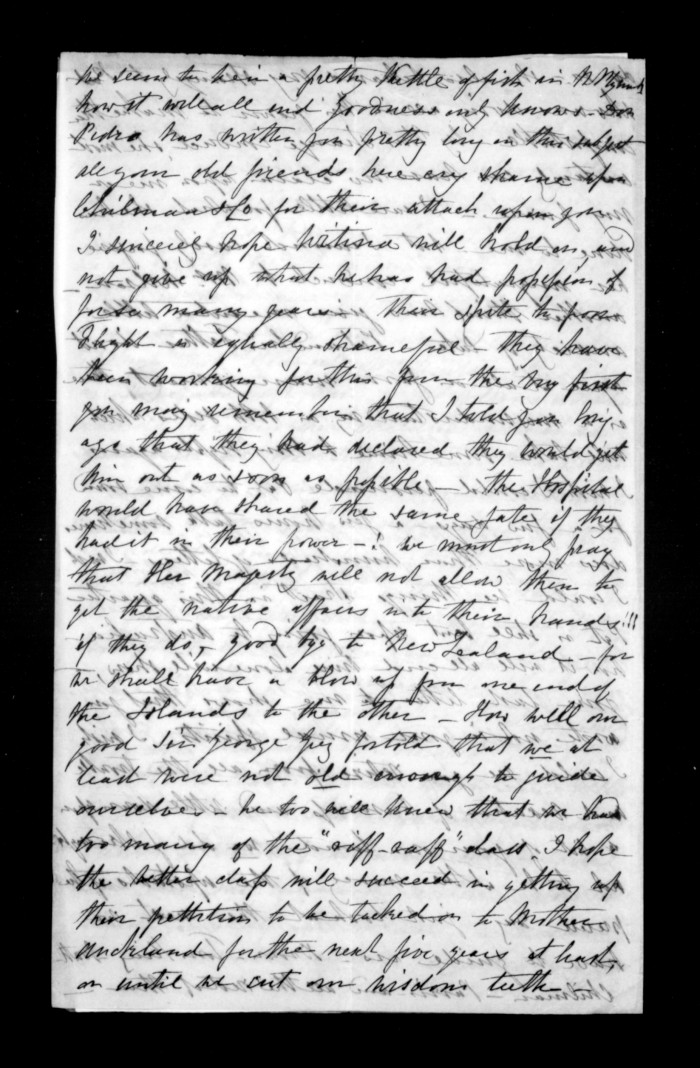 We seem to be in a pretty kettle of fish in N Plymouth
how it will all end goodness only knows - Don
Pedro has written you pretty long on this subject
all your old friends here cry shame upon
Chilman & Co for their attack upon you
I sincerely hope will hold on, and
not give up what he has had possession of
for so many years - their spite to poor
Flight is equally shameful - they have
been working for this from the very first
you may remember that I told you long
ago that they had declared they would get
him out as soon as possible - the Hospital
would have shared the same fate if they
had it in their power - ! we must only pray
that Her Majesty will not allow them to
get the native affairs into their hands!!!
if they do, good bye to New Zealand - for
we shall have a blow up from one end of
the Islands to the other - How well our
good Sir George Grey fortold that we at
least were not old enough to guide
ourselves - he too well knew that we had
too many of the "riff-raff" class, I hope
the better class will succeed in getting up
their pettition to be tacked on to Mother
Auckland for the next five years at least,
or until we cut our wisdom teeth -